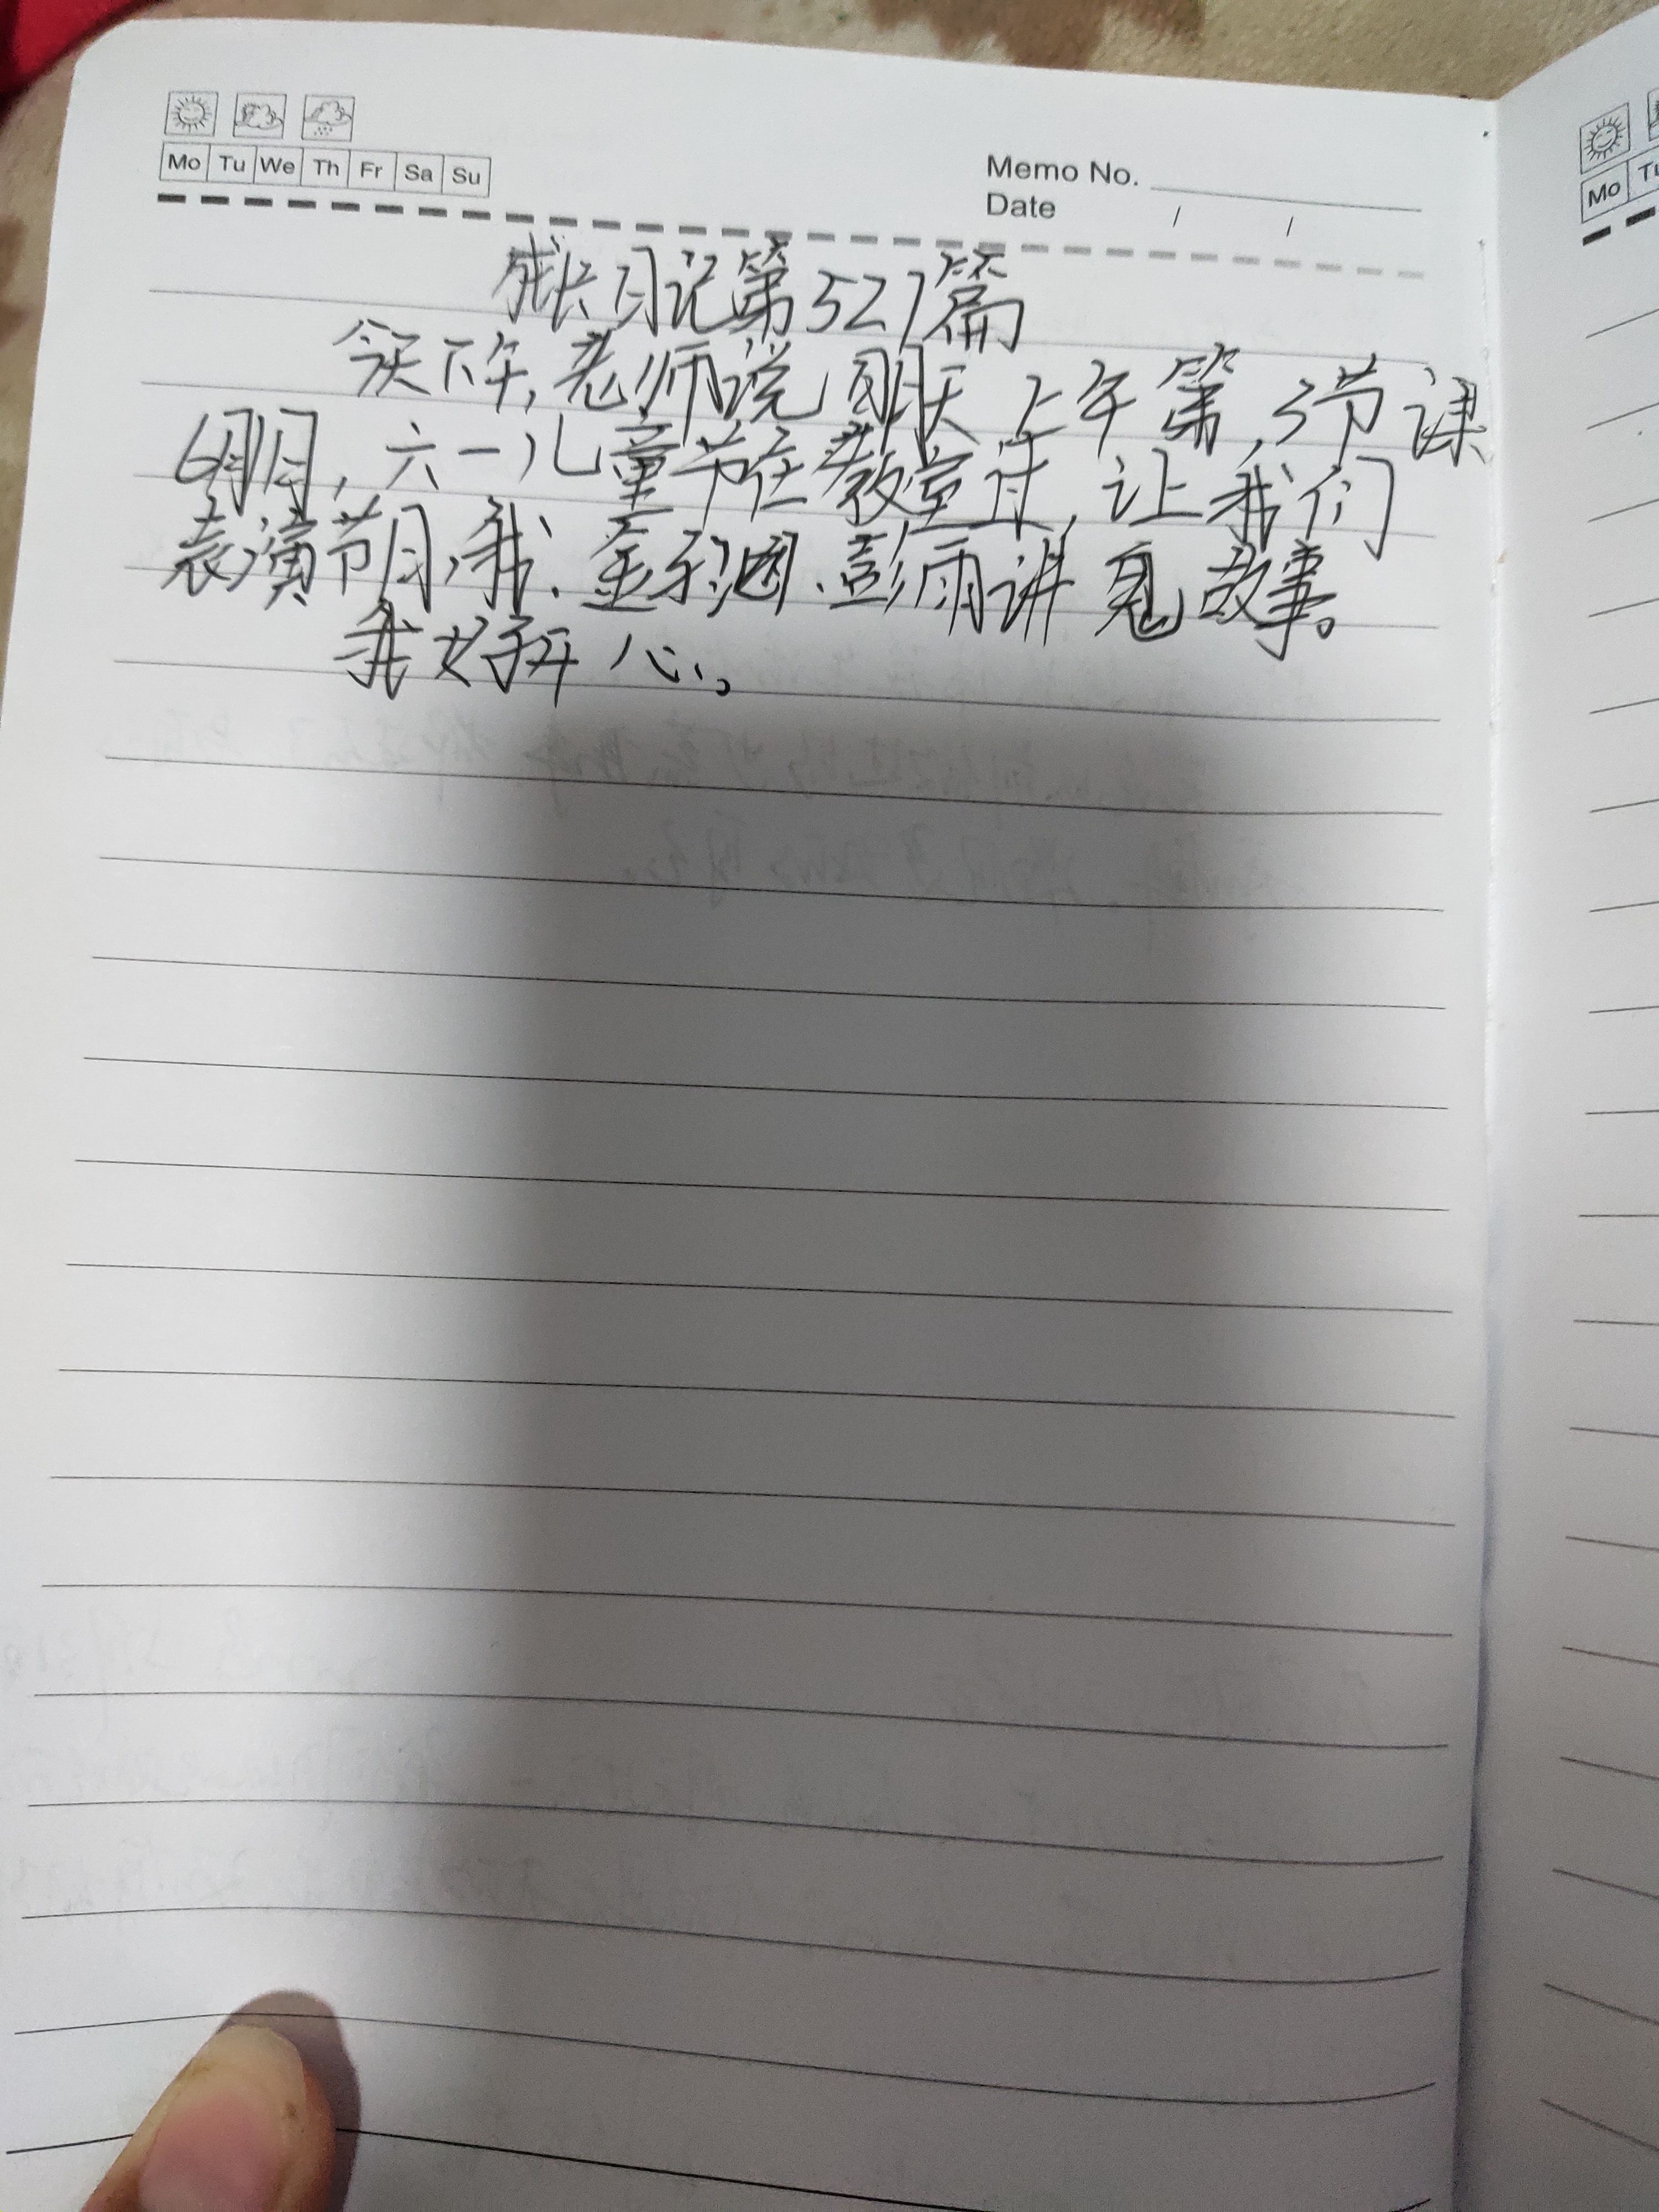 Mo Tu We Th Fr Sa Su
Memo No.
Date / /
成长日记第527篇
今天下午,老师说,明天上午第,3节课
月,六一儿童节在教室过,让我们
表演节目,我、金彭雨讲鬼故事。
我好开心。
Mo